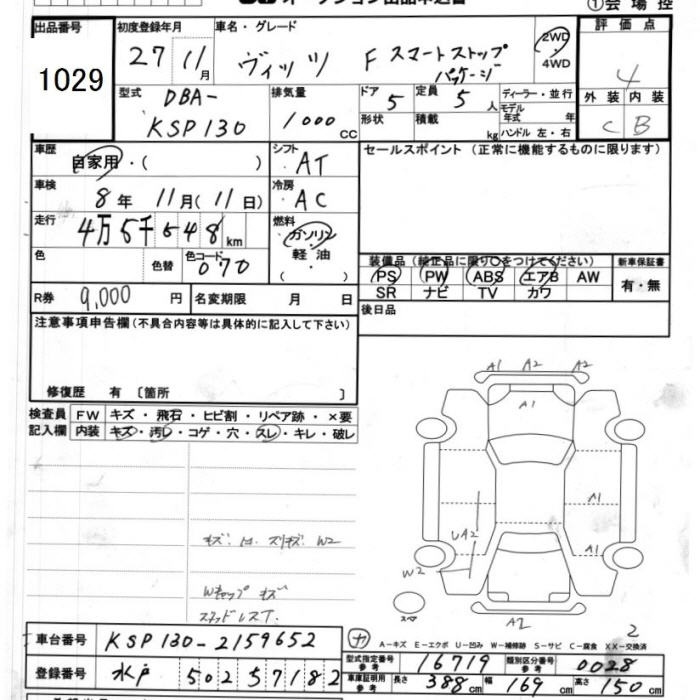 オークション出品申込書 ①会場控
出品番号 初度登録年月 車名・グレード 評価点
1029 27 11月 ヴィッツ F スマートストップ パッケージ 2WD・4WD 4
型式 排気量 ドア 定員 ディーラー・並行 外装 内装
DBA-KSP130 1000cc 5 5人 モデル年式 年 C B
形状 積載 kg ハンドル 左・右
車歴 シフト セールスポイント(正常に機能するものに限ります)
自家用・( ) AT
車検 冷房
8年 11月(11日) AC
走行 燃料
4万5千548km ガソリン・軽油・( )
色 色替 色コード 070
装備品(純正品に限り○をつけてください) 新車保証書
PS PW ABS エアB AW 有・無
SR ナビ TV カワ
R券 9,000円 名変期限 月 日
後日品
注意事項申告欄(不具合内容等は具体的に記入して下さい)
修復歴 有〔箇所 〕
検査員記入欄 FW キズ・飛石・ヒビ割・リペア跡・×要
内装 キズ・汚レ・コゲ・穴・スレ・キレ・破レ
A1 A2 A2
A1
A1
UA2
A1
W2
スペア
A2
2
W2
Wキャップ キズ
スタッドレスT.
車台番号 KSP130-2159652
A-キズ E-エクボ U-凹み W-補修跡 S-サビ C-腐食 XX-交換済
型式指定番号 参考 16719 類別区分番号 参考 0028
登録番号 水戸 502 57182
車庫証明用 参考 長さ 388cm 幅 169cm 高さ 150cm